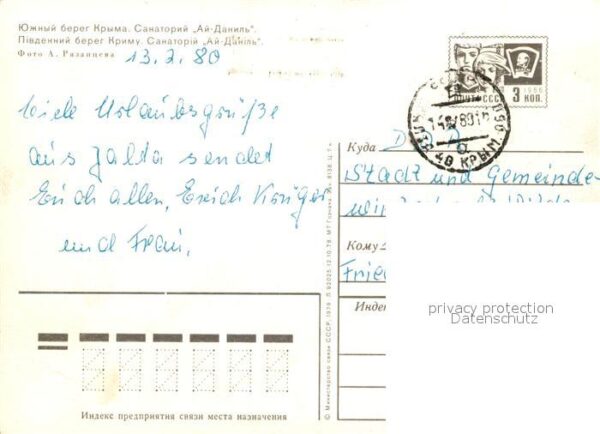 Южный берег Крыма. Санаторий „Ай-Даниль".
Південний берег Криму. Санаторій „Ай-Даніль".
Фото А. Рязанцева
13. 2. 80
Viele Urlaubsgrüße
aus Jalta sendet
Euch allen, Erich Krüger
und Frau.
1966
ПОЧТА СССР 3 КОП.
КРЫМ.
Куда D
Stadt und Gemeinde-
Кому
Fried
Индек
privacy protection
Datenschutz
Индекс предприятия связи места назначения
© Министерство связи СССР, 1978